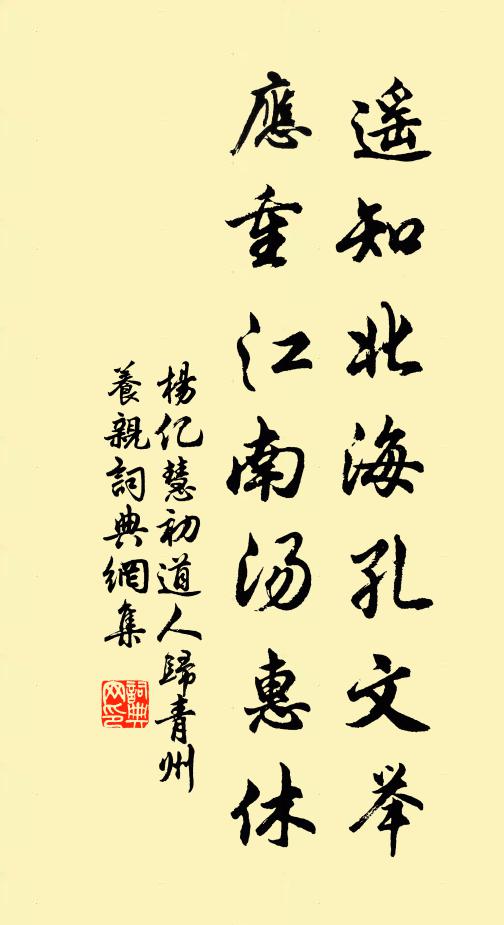 遥知北海孔文举
應重江南汤惠休
楊亿慧初道人歸青州
養親詞典網集
詞典
网印